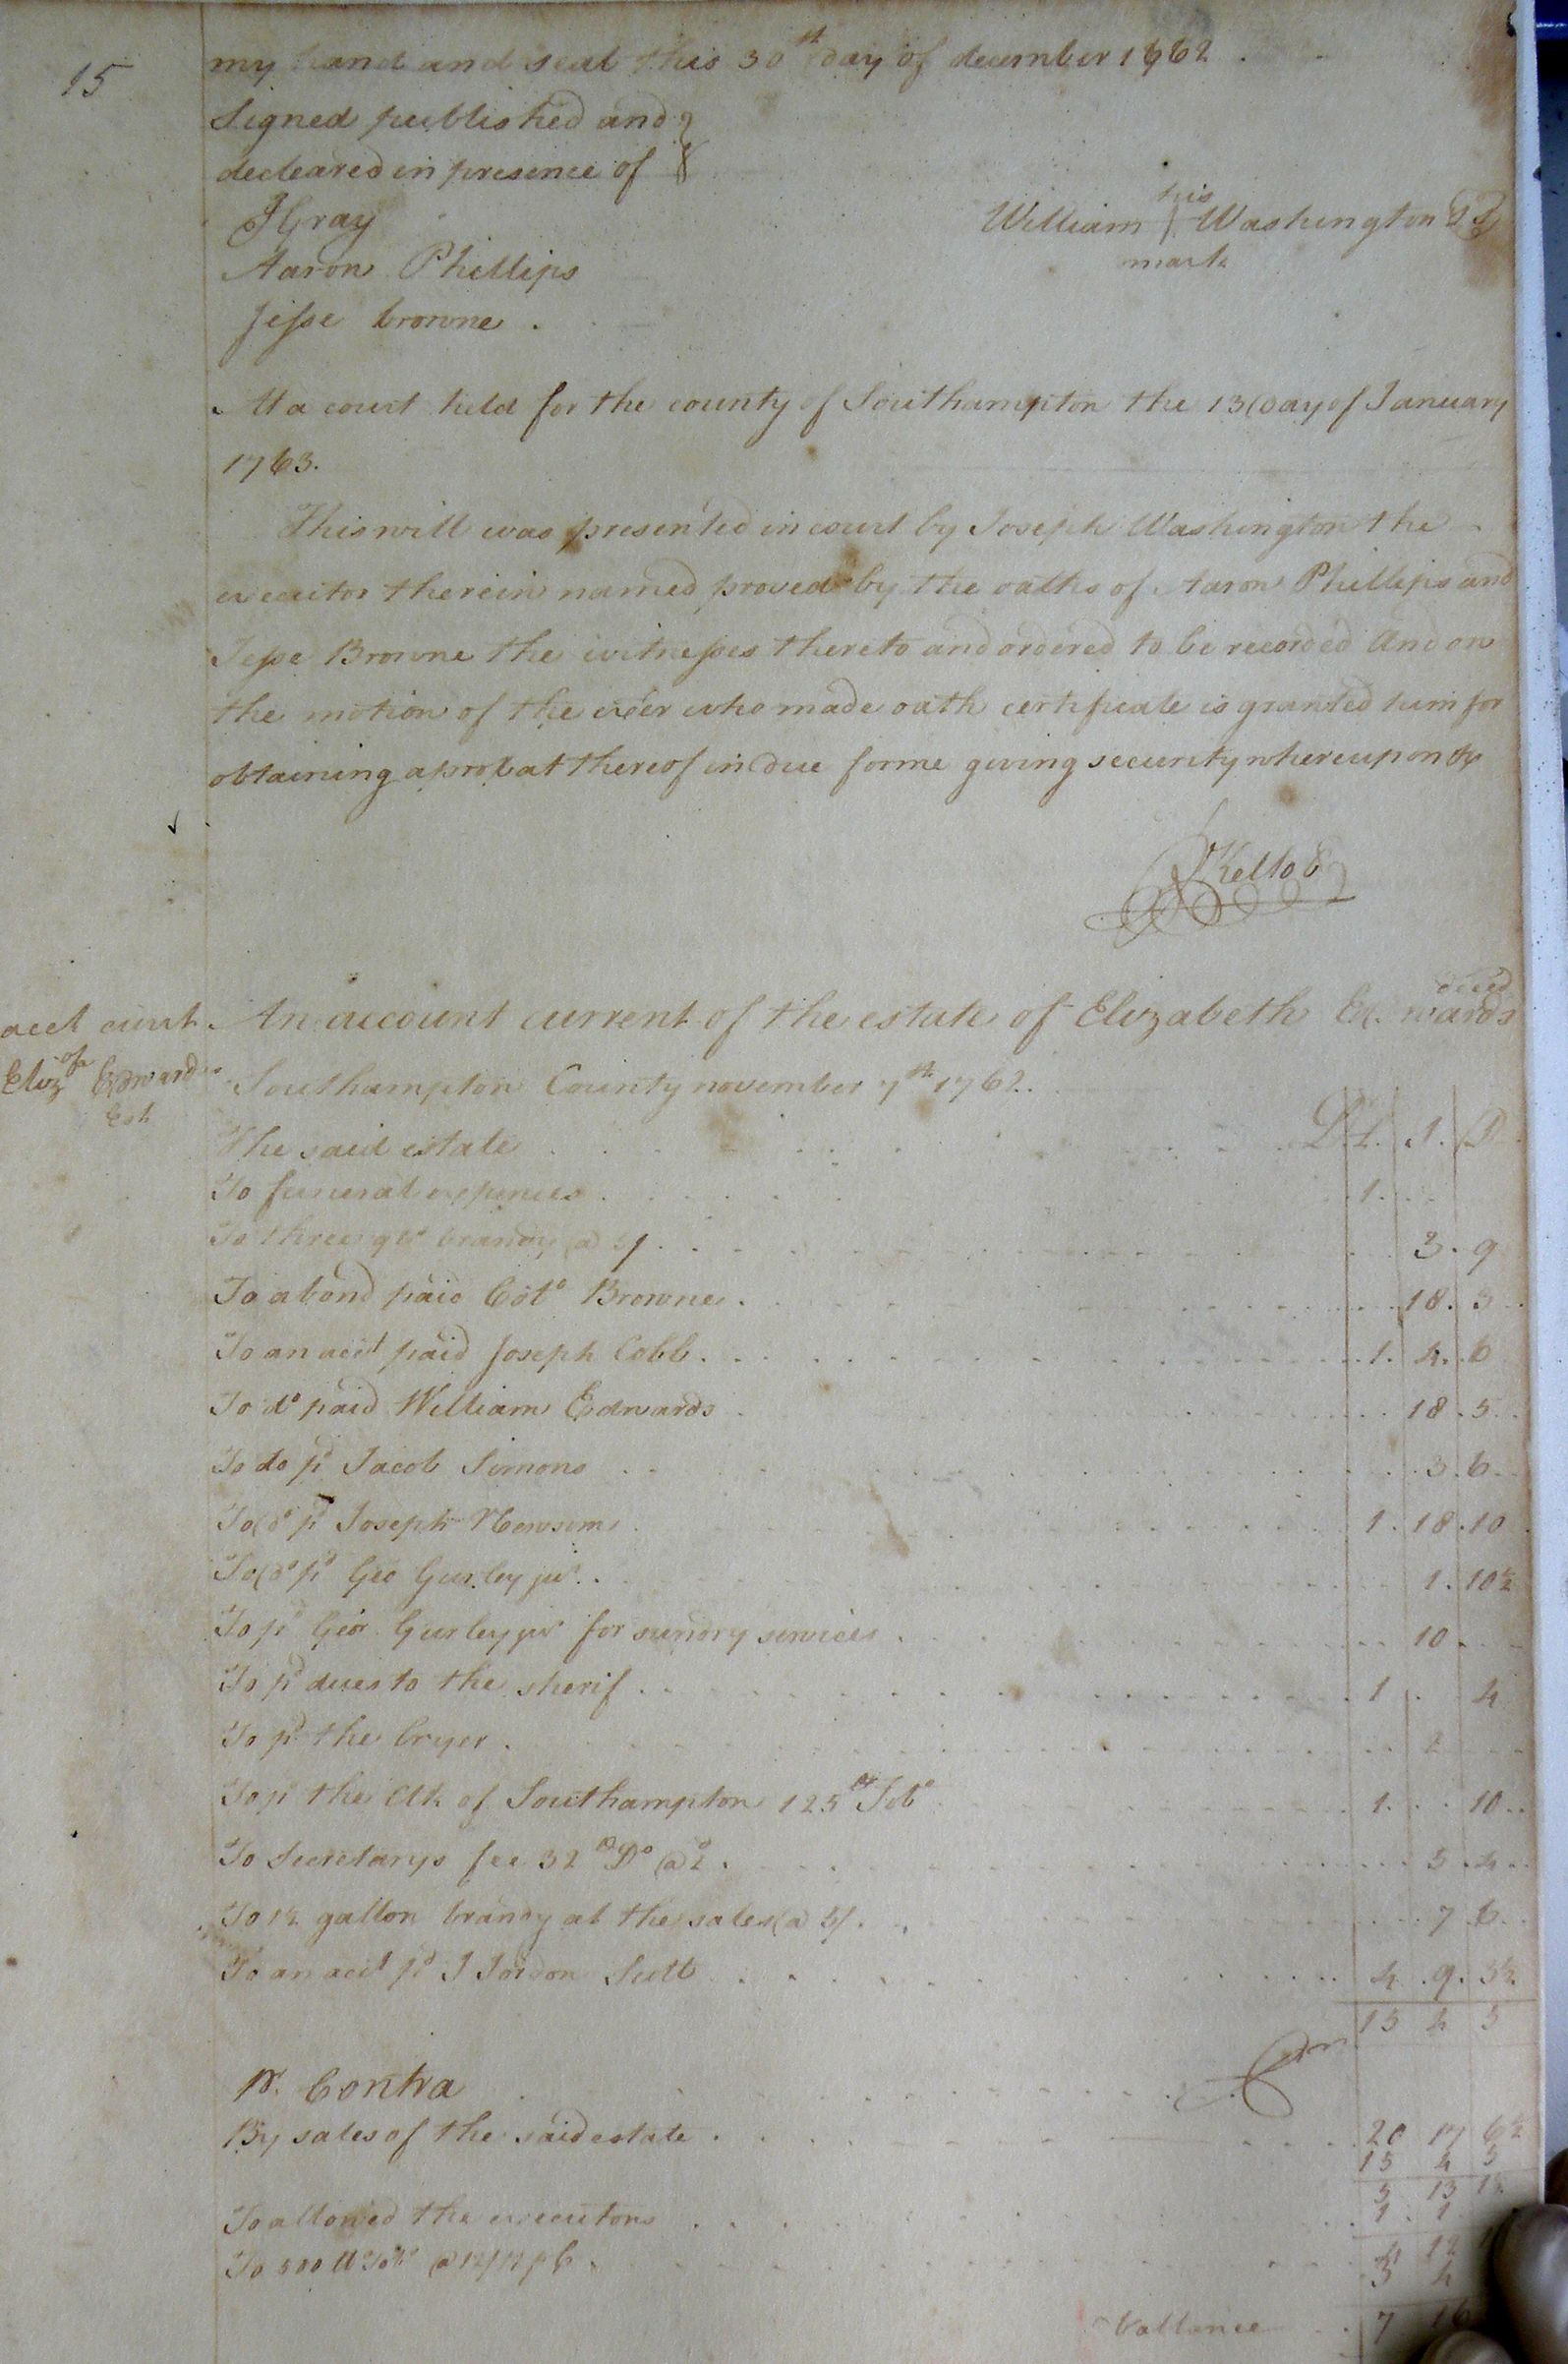 15
my hand and seal this 30th day of december 1762
Signed published and
decleared in presence of
J Gray
Aaron Phillips
Jesse browne .
his
William Washington LS
mark
At a court held for the county of Southampton the 13 day of January
1763.
This will was presented in court by Joseph Washington the
executor therein named proved by the oaths of Aaron Phillips and
Jesse Browne the witnesses thereto and ordered to be recorded And on
the motion of the exer who made oath certificate is granted him for
obtaining a probat thereof in due forme giving security whereupon &c
R Kello C
acct curt
of
Eliz Edwards
Est
An account current of the estate of Elizabeth Edwards decd
Southampton County november 7th 1762.
The said estate . . . Dr L. S. D
To funeral expences . . . 1.
To three qts brandy @ 5/ . . . 3. 9
To a bond paid Colo Browne . . . 18. 3
To an acct paid Joseph Cobb . . . 1. 4. 6
To do paid William Edwards . . . 18. 5
To do pd Jacob Simons . . . 3. 6
To do pd Joseph Newsom . . . 1. 18. 10
To do pd Geo Gurley jur . . . 1. 10½
To pd Geor Gurley jur for sundry services . . . 10
To pd dues to the sherif . . . 1 . 4
To pd the Cryer . . . 2
To pd the Clk of Southampton 125 Tobo . . . 1. . 10
To Secretarys fee 32 Do @ 2 . . . 5. 4
To 1½ gallon brandy at the sales @ 5/ . . . 7 6
To an acct pd J Jordon Scott . . . 4. 9. 3½
15 4 5
Pr. Contra
By sales of the said estate . . . 20 17 6½
15 4 5
5 13 1½
To allowed the executors . . . 1. 1
4 12
To 500 lb Tobo @ . . . 3 4
ballance . . 7 16